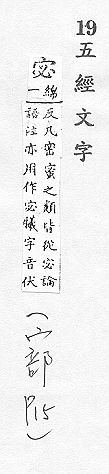 19 五經文字
宓
綿
一
反凡密蜜之類皆從宓論
語注亦用作宓犧字音伏
(宀部 P15)